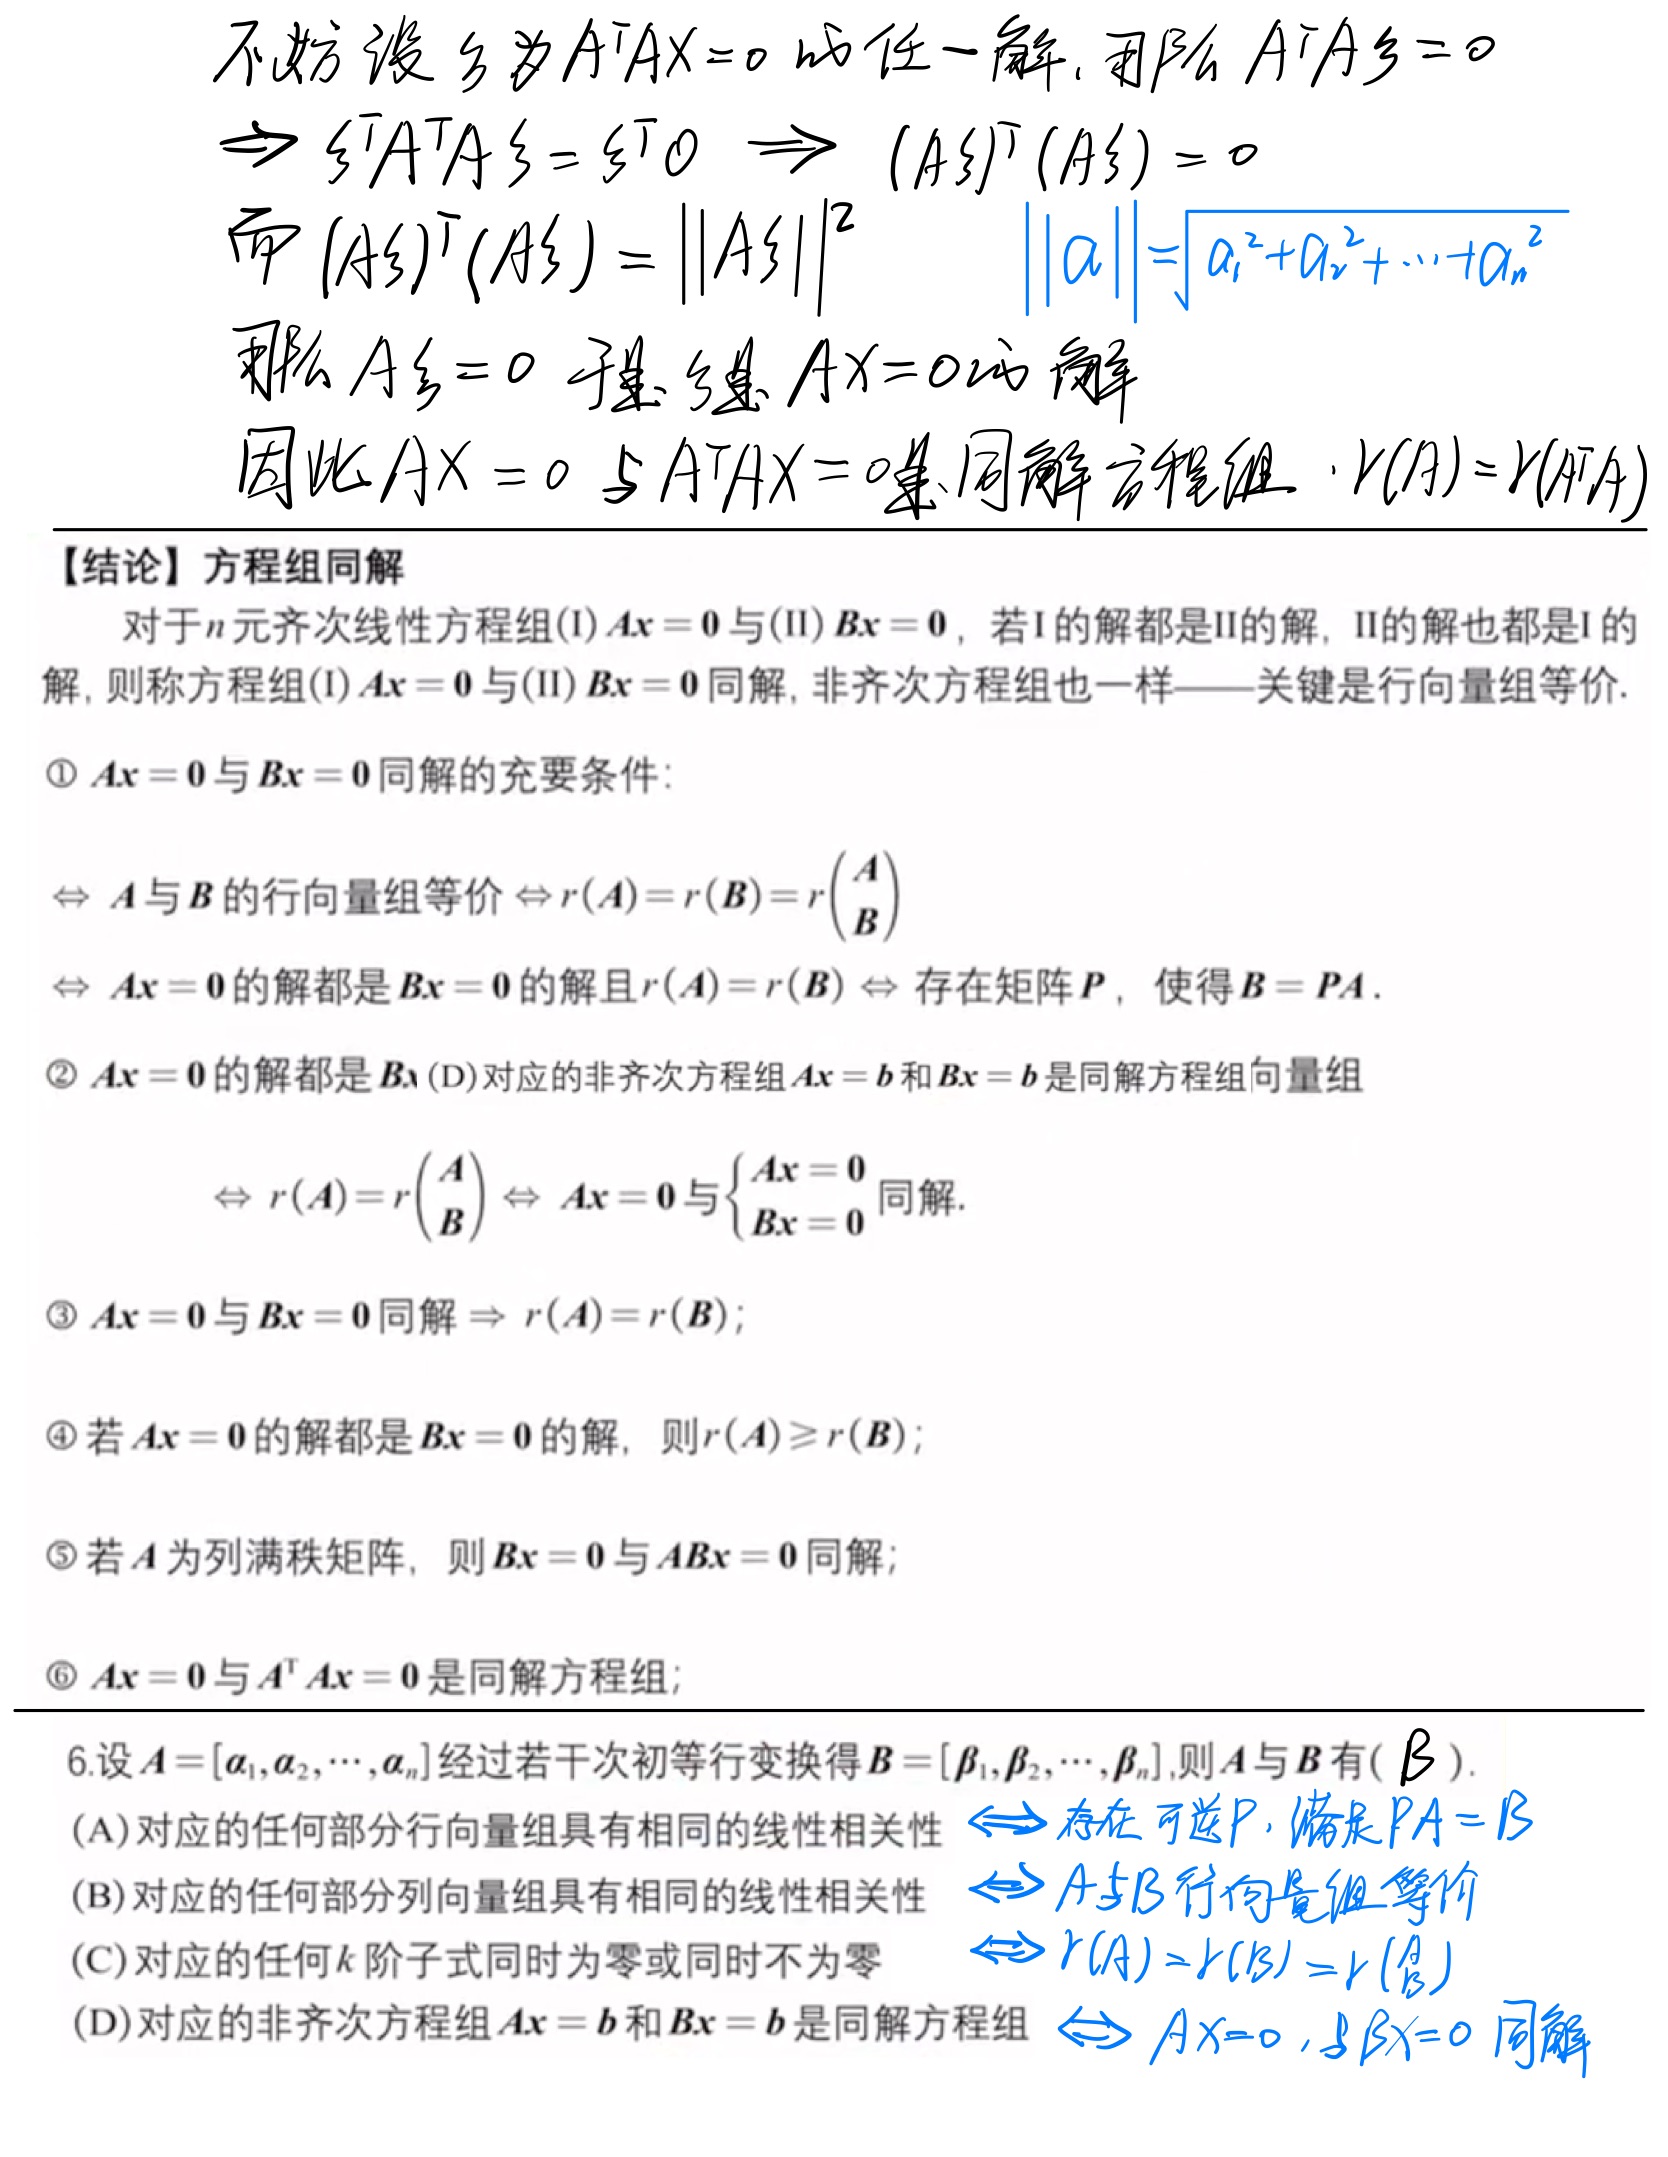 不妨设ξ为AᵀAX=0的任一解,那么AᵀAξ=0
⇒ ξᵀAᵀAξ=ξᵀ0 ⇒ (Aξ)ᵀ(Aξ)=0
而(Aξ)ᵀ(Aξ)=||Aξ||² ||a||=√(a₁²+a₂²+…+aₙ²)
那么Aξ=0 于是ξ是AX=0的解
因此AX=0与AᵀAX=0是同解方程组.r(A)=r(AᵀA)
【结论】方程组同解
对于n元齐次线性方程组(I) Ax=0与(II) Bx=0，若I的解都是II的解，II的解也都是I的
解, 则称方程组(I) Ax=0与(II) Bx=0同解, 非齐次方程组也一样——关键是行向量组等价.
① Ax=0与Bx=0同解的充要条件:
⇔ A与B的行向量组等价⇔r(A)=r(B)=r(A B)
⇔ Ax=0的解都是Bx=0的解且r(A)=r(B) ⇔ 存在矩阵P，使得B=PA.
② Ax=0的解都是Bx (D)对应的非齐次方程组Ax=b和Bx=b是同解方程组向量组
⇔ r(A)=r(A B) ⇔ Ax=0与{Ax=0 Bx=0 同解.
③ Ax=0与Bx=0同解 ⇒ r(A)=r(B);
④ 若Ax=0的解都是Bx=0的解，则r(A)≥r(B);
⑤ 若A为列满秩矩阵，则Bx=0与ABx=0同解;
⑥ Ax=0与AᵀAx=0是同解方程组;
6.设A=[α₁,α₂,⋯,αₙ]经过若干次初等行变换得B=[β₁,β₂,⋯,βₙ],则A与B有( B ).
(A)对应的任何部分行向量组具有相同的线性相关性 ⇔ 存在可逆P,满足PA=B
(B)对应的任何部分列向量组具有相同的线性相关性 ⇔ A与B行向量组等价
(C)对应的任何k阶子式同时为零或同时不为零 ⇔ r(A)=r(B)=r(A B)
(D)对应的非齐次方程组Ax=b和Bx=b是同解方程组 ⇔ AX=0,与BX=0同解